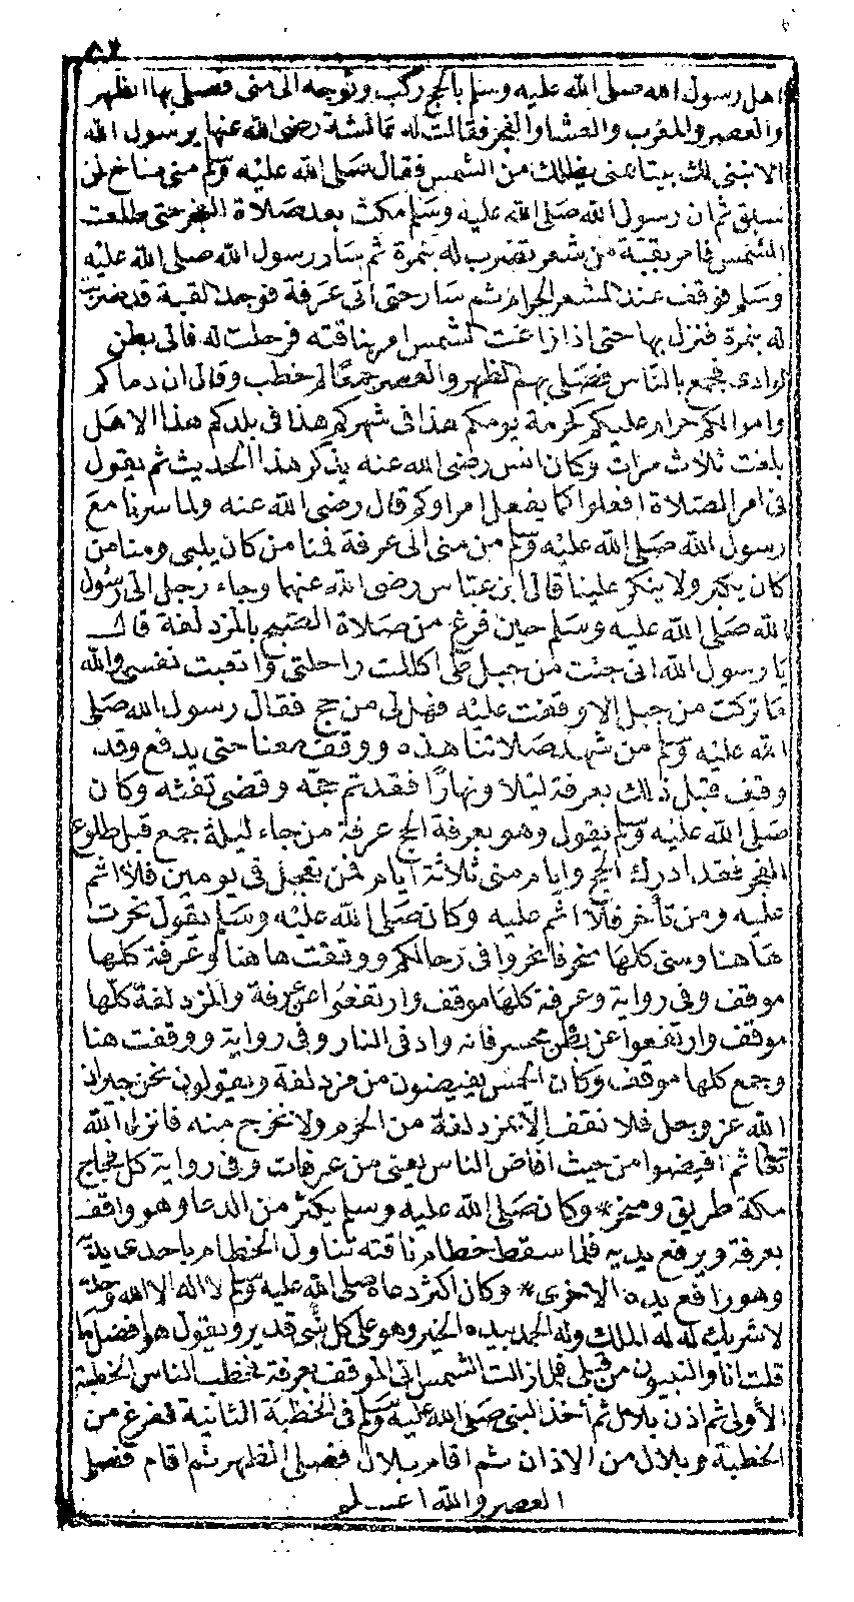 ٨٢
اهل رسول الله صلى الله عليه وسلم بالحج ركب وتوجه الى منى فصلى بها الظهر
والعصر والمغرب والعشا والفجر فقالت له عائشة رضى الله عنها يرسول الله
الا نبنى لك بيتا بمنى يظلك من الشمس فقال صلى الله عليه وسلم منى مناخ لمن
سبق ثم ان رسول الله صلى الله عليه وسلم مكث بعد صلاة الفجر حتى طلعت
الشمس فامر بقبة من شعر تضرب له بنمرة ثم سار رسول الله صلى الله عليه
وسلم فوقف عند المشعر الحرام ثم سار حتى اتى عرفة فوجد القبة قد ضربت
له بنمرة فنزل بها حتى اذا زاغت الشمس امر بناقته فرحلت له فاتى بطن
الوادى فجمع بالناس فصلى بهم الظهر والعصر جمعا ثم خطب وقال ان دماكم
واموالكم حرام عليكم كحرمة يومكم هذا فى شهركم هذا فى بلدكم هذا الا هل
بلغت ثلاث مرات وكان انس رضى الله عنه يذكر هذا الحديث ثم يقول
فى امر الصلاة افعلوا كما يفعل امراوكم قال رضى الله عنه ولما سرنا مع
رسول الله صلى الله عليه وسلم من منى الى عرفة فمنا من كان يلبى ومنا من
كان يكبر ولا ينكر علينا قال ابن عباس رضى الله عنهما وجاء رجل الى رسول
الله صلى الله عليه وسلم حين فرغ من صلاة الصبح بالمزدلفة قال
يا رسول الله انى جئت من جبل طى اكللت راحلتى واتعبت نفسى والله
ما تركت من جبل الا وقفت عليه فهل لى من حج فقال رسول الله صلى
الله عليه وسلم من شهد صلاتنا هذه ووقف معنا حتى يدفع وقد
وقف قبل ذلك بعرفة ليلا ونهارًا فقد تم حجه وقضى تفثه وكان
صلى الله عليه وسلم يقول وهو بعرفة الحج عرفة من جاء ليلة جمع قبل طلوع
الفجر فقد ادرك الحج وايام منى ثلاثة ايام فمن تعجل فى يومين فلا اثم
عليه ومن تأخر فلا اثم عليه وكان صلى الله عليه وسلم يقول نحرت
هاهنا ومنى كلها منحر فانحروا فى رحالكم ووقفت هاهنا وعرفة كلها
موقف وفى رواية وعرفة كلها موقف وارتفعوا عن عرفة والمزدلفة كلها
موقف وارتفعوا عن بطن محسر فانه واد فى النار وفى رواية ووقفت هنا
وجمع كلها موقف وكان الحمس يفيضون من مزدلفة ويقولون نحن جيران
الله عز وجل فلا نقف الا بمزدلفة من الحرم ولا نخرج منه فانزل الله
تعالى ثم افيضوا من حيث افاض الناس يعنى من عرفات وفى رواية كل فجاج
مكة طريق ومنحر * وكان صلى الله عليه وسلم يكثر من الدعا وهو واقف
بعرفة ويرفع يديه فلما سقط خطام ناقته تناول الخطام باحدى يديه
وهو رافع يده الاخرى * وكان اكثر دعاه صلى الله عليه وسلم لا اله الا الله وحده
لا شريك له له الملك وله الحمد بيده الخير وهو على كل شى قدير ويقول هو افضل ما
قلت انا والنبيون من قبلى فلما زالت الشمس اتى الموقف بعرفة فخطب الناس الخطبة
الأولى ثم اذن بلال ثم اخذ النبى صلى الله عليه وسلم فى الخطبة الثانية ففرغ من
الخطبة وبلال من الاذان ثم اقام بلال فصلى الظهر ثم اقام فصلى
العصر والله اعلم